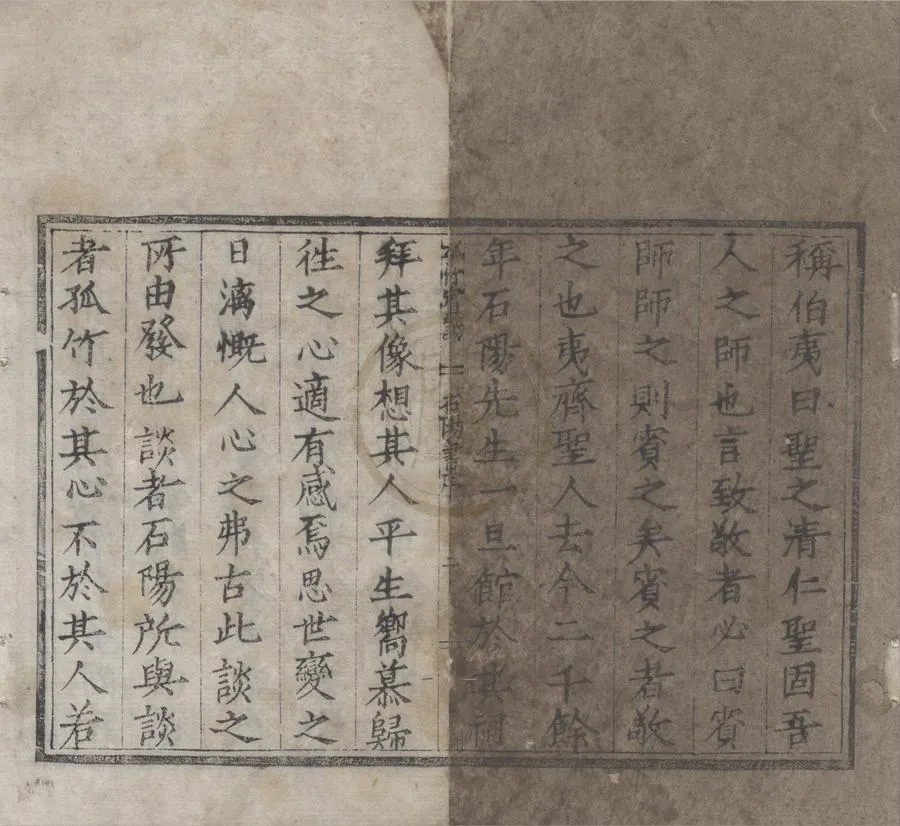 稱伯夷曰聖之清仁聖固吾
人之師也言致敬者必曰賓
師師之則賓之矣賓之者敬
之也夷齊聖人去今二千餘
年石陽先生一旦館於其祠
孤竹賓談 石陽 序 二
拜其像想其人平生嚮慕歸
徃之心適有感焉思世變之
日漓慨人心之弗古此談之
所由發也談者石陽所與談
者孤竹於其心不於其人若